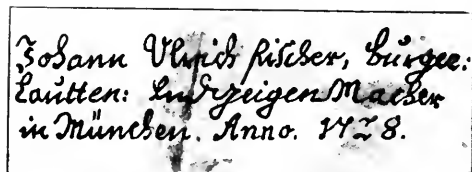 Johann Ulrich Fischer, burger:
Lautten: und geigen Macher
in München. Anno. 1728.